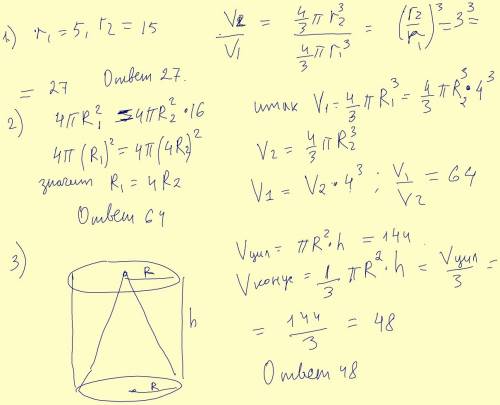 1) r₁=5, r₂=15
V₂/V₁ = (4/3 π r₂³)/(4/3 π r₁³) = (r₂/r₁)³ = 3³ =
= 27 Ответ 27.
2) 4πR₁² = 4πR₂²·16
4π(R₁)² = 4π(4R₂)²
значит R₁ = 4R₂
Ответ 64
итак V₁ = 4/3 πR₁³ = 4/3 πR₂³·4³
V₂ = 4/3 πR₂³
V₁ = V₂·4³ ; V₁/V₂ = 64
3)
R
h
R
Vцил = πR²·h = 144.
Vконус = 1/3 πR²·h = Vцил/3 =
= 144/3 = 48
Ответ 48